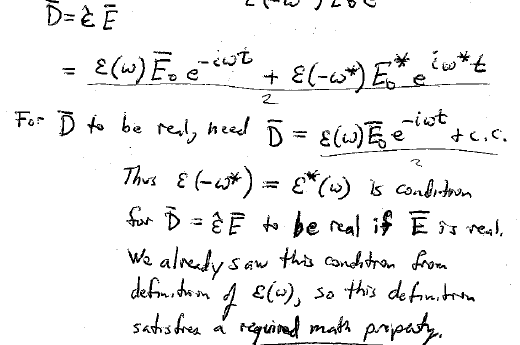 D̄ = ε̂ Ē
= ε(ω) Ē₀ e^{-iωt} + ε(-ω*) Ē₀* e^{iω*t}
2
For D̄ to be real, need D̄ = ε(ω) Ē₀ e^{-iωt} + c.c.
2
Thus ε(-ω*) = ε*(ω) is condition
for D̄ = ε̂ Ē to be real if Ē is real.
We already saw this condition from
definition of ε(ω), so this definition
satisfies a required math property.